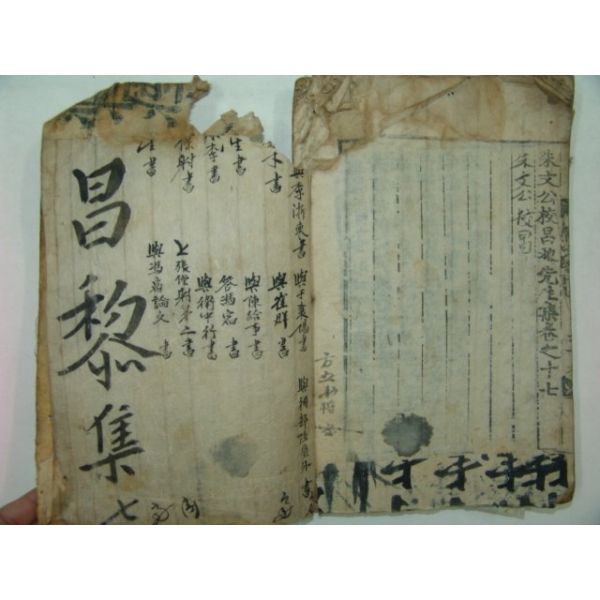 朱文公校昌黎先生集卷之十七
朱文公校昌
與李浙東書 與于襄陽書 與祠部陸員外書
書 與崔群書
生書 與陳給事書
李書 答馮宿書
與衛中行書
射書 上張僕射第二書
生書 與馮宿論文書
昌黎集 七